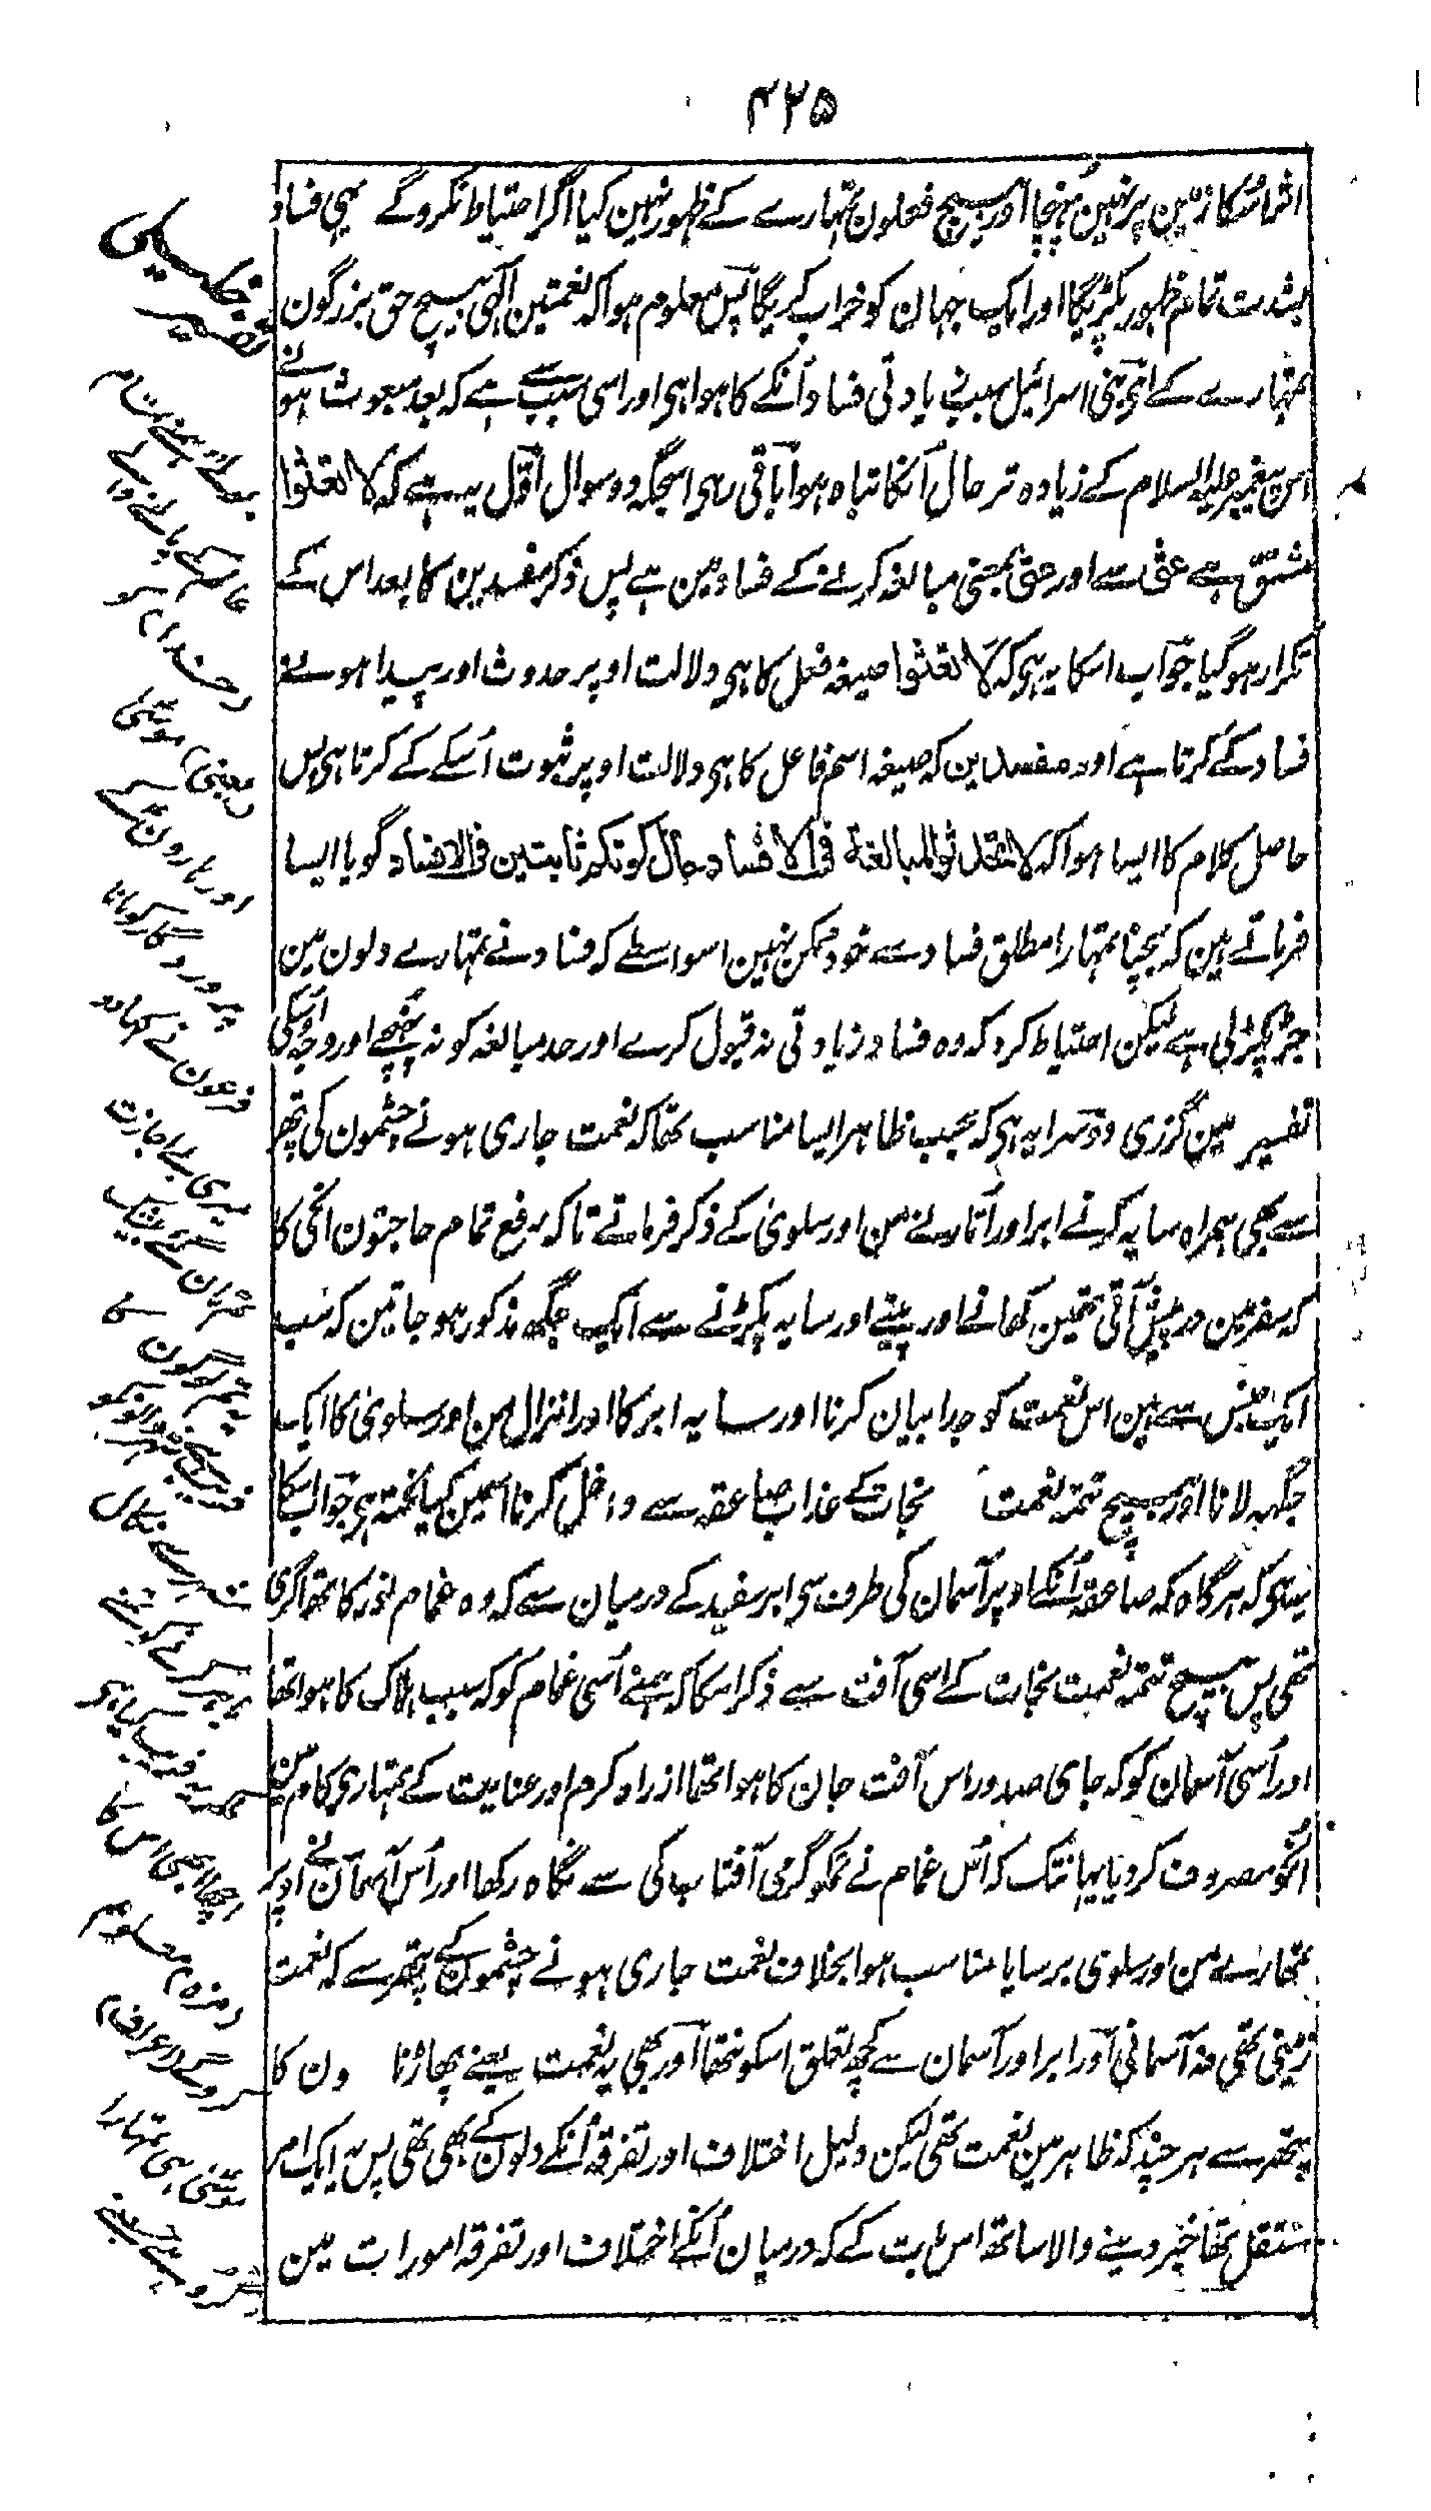 ۴۲۵
اثر اُسکا زمین پر نہین پہنچا اور بیچ فعلون تمہارے کے ظہور نہین کیا اگر احتیاط نکروگے یہی فساد
بشدت تمام ظہور پکڑیگا اور ایک جہان کو خراب کریگا پس معلوم ہوا کہ نعمتین الٰہی بیچ حق بزرگون
تمہارے کے ای بنی اسرائیل سبب زیادتی فساد اُنکے کا ہوا ہی اور اسی سبب سے ہے کہ بعد مبعوث ہونے
اس پیغمبر علیہ السلام کے زیادہ تر حال اُنکا تباہ ہوا باقی رہی اسجگہ دو سوال اوّل یہ ہے کہ لا تعثوا
مشتق ہے عثی سے اور عثی بمعنی مبالغہ کرنے کے فساد مین ہے پس ذکر مفسدین کا بعد اس کے
تکرار ہوگیا جواب اسکا یہ ہی کہ لا تعثوا صیغہ فعل کا ہی دلالت اوپر حدوث اور پیدا ہونے
فساد کے کرتا ہے اور مفسدین کہ صیغہ اسم فاعل کا ہی دلالت اوپر ثبوت اُسکے کے کرتا ہی پس
حاصل کلام کا ایسا ہوا کہ لا تحدثوا المبالغة فی الافساد حال کونکم ثابتین فی الافساد گویا ایسا
فرماتے ہین کہ بچنا تمہارا مطلق فساد سے خود ممکن نہین اسواسطے کہ فساد نے تمہارے دلون مین
جڑ پکڑلی ہے لیکن احتیاط کرو کہ وہ فساد زیادتی نہ قبول کرے اور حد مبالغہ کو نہ پہنچے اور وجہ اُسکی
تفسیر مین گزری دوسرا یہ ہی کہ بحیب ظاہر ایسا مناسب تھا کہ نعمت جاری ہونے چشمون کی پتھر
سے بھی ہمراہ سایہ کرنے ابر اور اُتارنے من اور سلویٰ کے ذکر فرماتے تاکہ رفع تمام حاجتون انکی کا
کہ سفر مین درپیش آتی تھین کھانے اور پینے اور سایہ پکڑنے سے ایک جگہ مذکور ہو جاتین کہ سب
ایک جنس سے ہین اس نعمت کو جدا بیان کرنا اور سایہ ابر کا اور انزال من اور سلویٰ کا ایک
جگہہ لانا اور بیچ تتمہ نعمت نجات کے عذاب صاعقہ سے داخل کرنا اسمین کیا نکتہ ہی جواب اسکا
یہ ہی کہ ہر گاہ کہ صاعقہ اُنکے اوپر آسمان کی طرف سی ابر سفید کے درمیان سے کہ وہ غمام نور کا تھا گری
تھی پس بیچ تتمہ نعمت نجات کے اسی آفت سے ذکر اسکا کہ ہمنے اُسی غمام کو کہ سبب ہلاک کا ہوا تھا
اور اُسی آسمان کو کہ جای صدور اس آفت جان کا ہوا تھا از راہ کرم اور عنایت کے تمہاری کام مین
انکو مصروف کر دیا یہانتک کہ اُس غمام نے تمکو گرمی آفتاب کی سے نگاہ رکھا اور اُس آسمان نے اوپر
تمھارے من اور سلوی برسایا مناسب ہوا بخلاف نعمت جاری ہونے چشمون کے پتھر سے کہ نعمت
زمینی تھی نہ آسمانی اور ابر اور آسمان سے کچھ تعلق اسکو نتھا اور بھی یہ نعمت یعنے پھاڑنا ون کا
پتھر سے ہر چند کہ ظاہر مین نعمت تھی لیکن دلیل اختلاف اور تفرقہ اُنکے دلون کے بھی تھی پس یہ ایک امر
مستقل تھا خبر دینے والا ساتھ اس بات کے کہ درمیان اُنکے اختلاف اور تفرقہ امورات مین
رب موسیٰ
اور ہارون کے
فرعون نے کہا
میری بے اجازت
شہر کے لوگون کا
اچھا ابھی اس کا
مزہ معلوم
کروگے